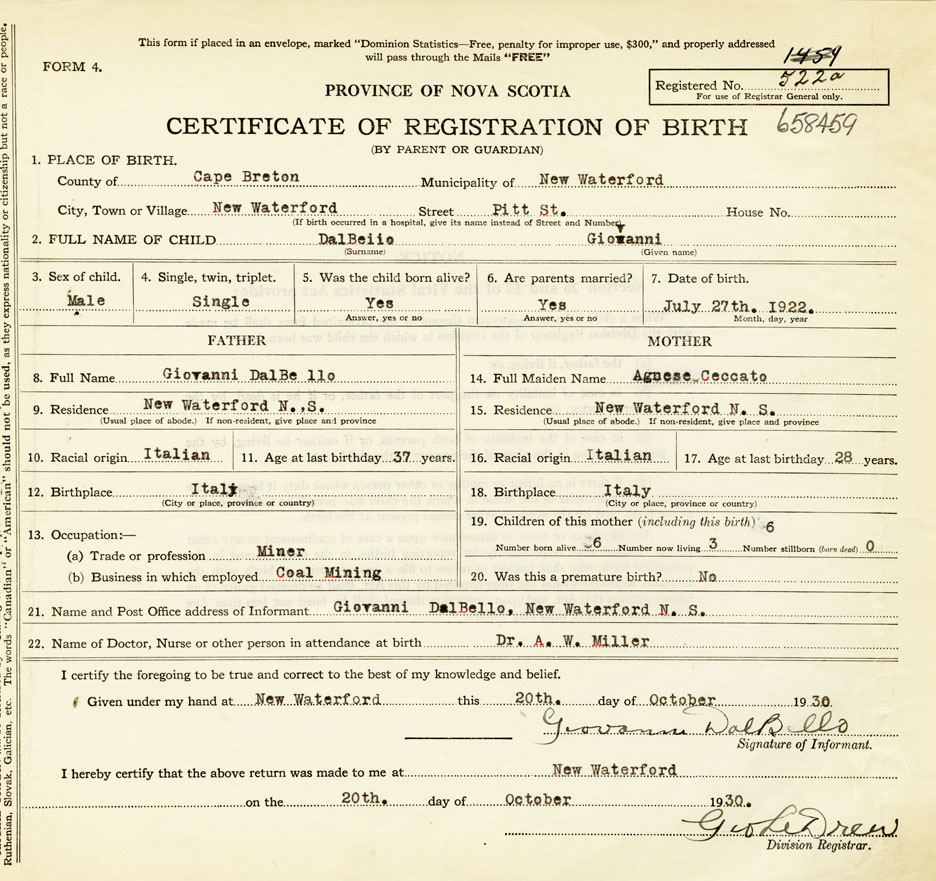 This form if placed in an envelope, marked "Dominion Statistics—Free, penalty for improper use, $300," and properly addressed
will pass through the Mails "FREE"
FORM 4.
1459
Registered No. 522a
For use of Registrar General only.
PROVINCE OF NOVA SCOTIA
CERTIFICATE OF REGISTRATION OF BIRTH 658459
(BY PARENT OR GUARDIAN)
1. PLACE OF BIRTH.
County of Cape Breton Municipality of New Waterford
City, Town or Village New Waterford Street Pitt St. House No.
(If birth occurred in a hospital, give its name instead of Street and Number)
2. FULL NAME OF CHILD DalBello Giovanni
(Surname) (Given name)
3. Sex of child. 4. Single, twin, triplet. 5. Was the child born alive? 6. Are parents married? 7. Date of birth.
Male Single Yes Yes July 27th. 1922.
Answer, yes or no Answer, yes or no Month, day, year
FATHER MOTHER
8. Full Name Giovanni DalBe llo 14. Full Maiden Name Agnese Ceccato
9. Residence New Waterford N.,S. 15. Residence New Waterford N. S.
(Usual place of abode.) If non-resident, give place and province (Usual place of abode.) If non-resident, give place and province
10. Racial origin Italian 11. Age at last birthday 37 years. 16. Racial origin Italian 17. Age at last birthday 28 years.
12. Birthplace Italy 18. Birthplace Italy
(City or place, province or country) (City or place, province or country)
13. Occupation:— 19. Children of this mother (including this birth) 6
(a) Trade or profession Miner Number born alive 6 Number now living 3 Number stillborn (born dead) 0
(b) Business in which employed Coal Mining 20. Was this a premature birth? No
21. Name and Post Office address of Informant Giovanni DalBello, New Waterford N. S.
22. Name of Doctor, Nurse or other person in attendance at birth Dr. A. W. Miller
I certify the foregoing to be true and correct to the best of my knowledge and belief.
Given under my hand at New Waterford this 20th. day of October 1930.
Giovanni DalBello
Signature of Informant.
I hereby certify that the above return was made to me at New Waterford
on the 20th. day of October 1930.
Geo L Drew
Division Registrar.
Ruthenian, Slovak, Galician, etc. The words "Canadian" or "American" should not be used, as they express nationality or citizenship but not a race or people.